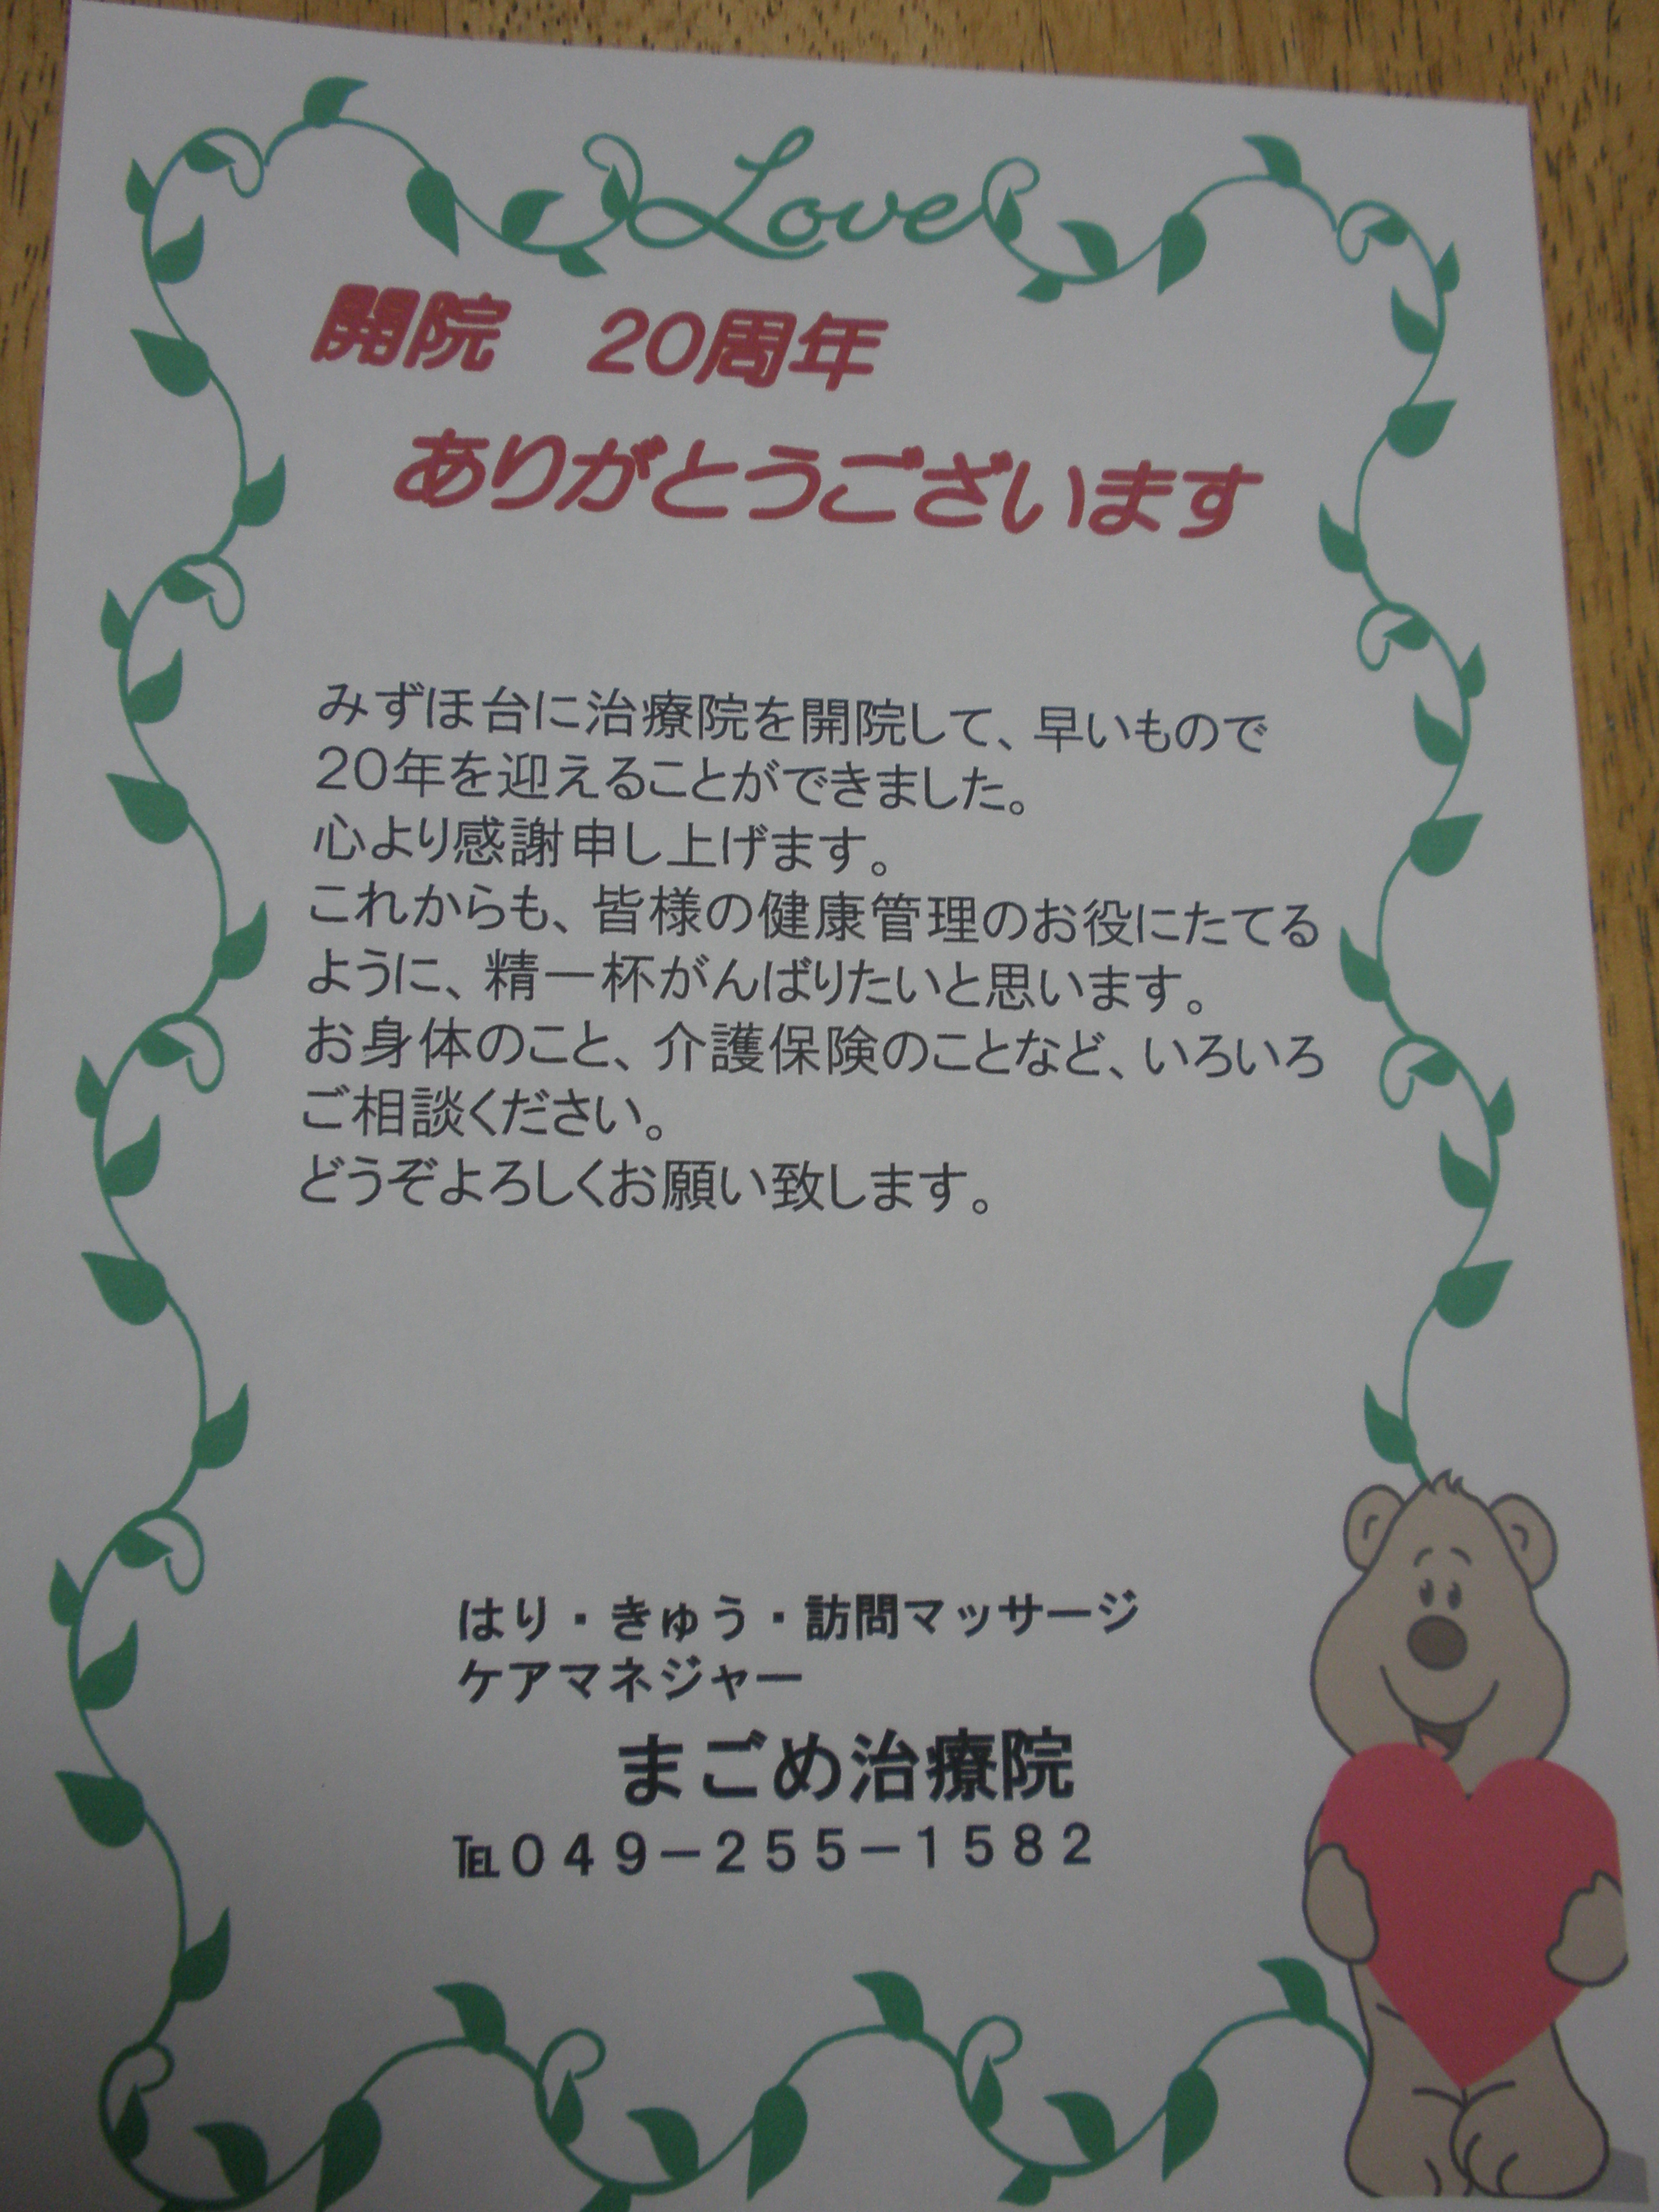 Love
開院　20周年
ありがとうございます
みずほ台に治療院を開院して、早いもので
20年を迎えることができました。
心より感謝申し上げます。
これからも、皆様の健康管理のお役にたてる
ように、精一杯がんばりたいと思います。
お身体のこと、介護保険のことなど、いろいろ
ご相談ください。
どうぞよろしくお願い致します。
はり・きゅう・訪問マッサージ
ケアマネジャー
まごめ治療院
℡０４９－２５５－１５８２